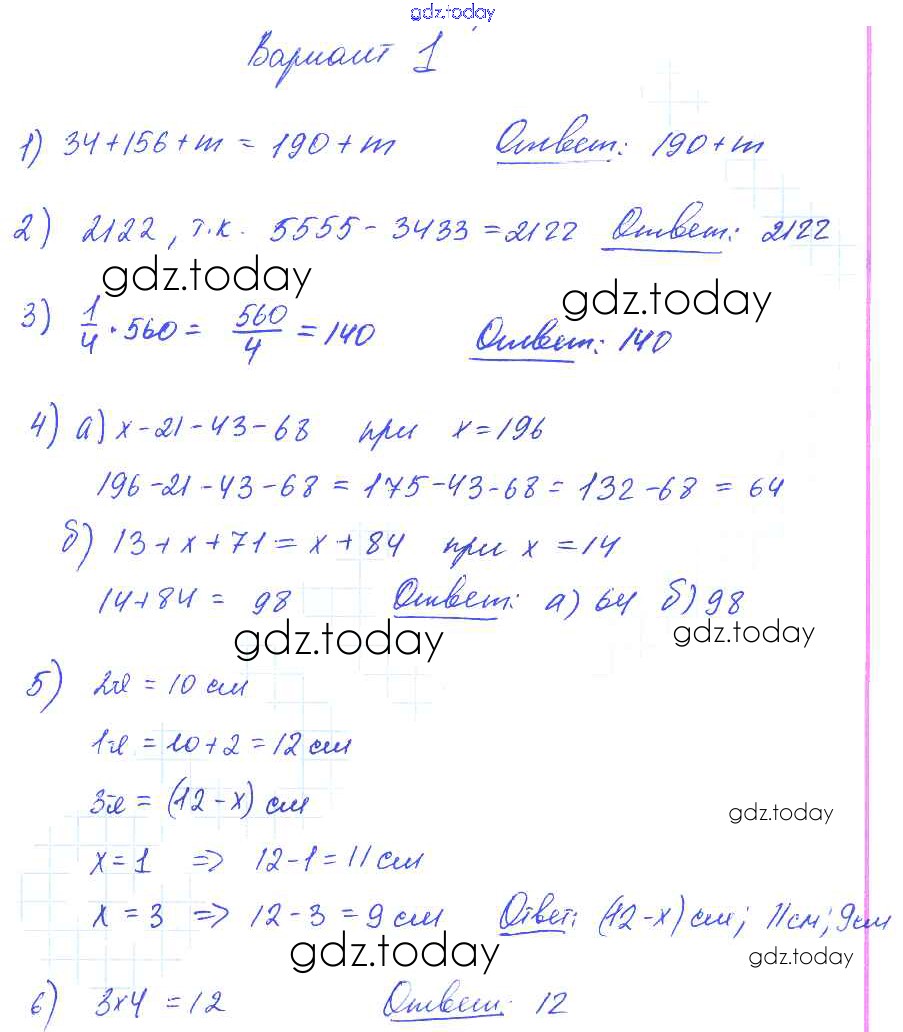 gdz.today
Вариант 1
1) 34+156+m = 190+m Ответ: 190+m
2) 2122, т.к. 5555-3433=2122 Ответ: 2122
gdz.today gdz.today
3) 1/4 · 560 = 560/4 = 140 Ответ: 140
4) а) x-21-43-68 при x=196
196-21-43-68 = 175-43-68 = 132-68 = 64
б) 13+x+71 = x+84 при x=14
14+84 = 98 Ответ: а) 64 б) 98
gdz.today gdz.today
5) 2й = 10 см
1й = 10+2 = 12 см
3й = (12-x) см
gdz.today
x=1 => 12-1=11 см
x=3 => 12-3=9 см Ответ: (12-x) см; 11см; 9см
gdz.today gdz.today
6) 3x4 = 12 Ответ: 12